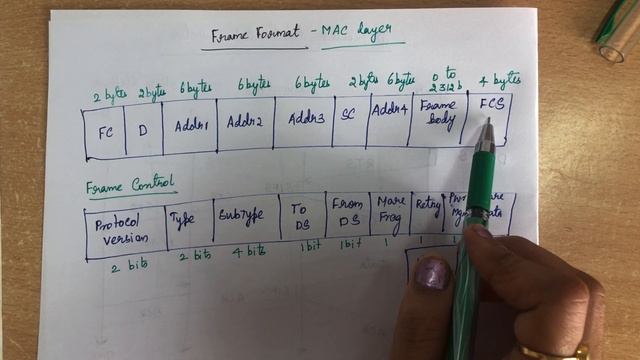 Frame Format - MAC layer
2 bytes 2 bytes 6 bytes 6 bytes 6 bytes 2 bytes 6 bytes 0 to 2312 b 4 bytes
FC D Addr1 Addr2 Addr3 SC Addr4 Frame body FCS
Frame Control
Protocol version Type SubType To DS From DS More Frag Retry
2 bits 2 bits 4 bits 1 bit 1 bit 1 1